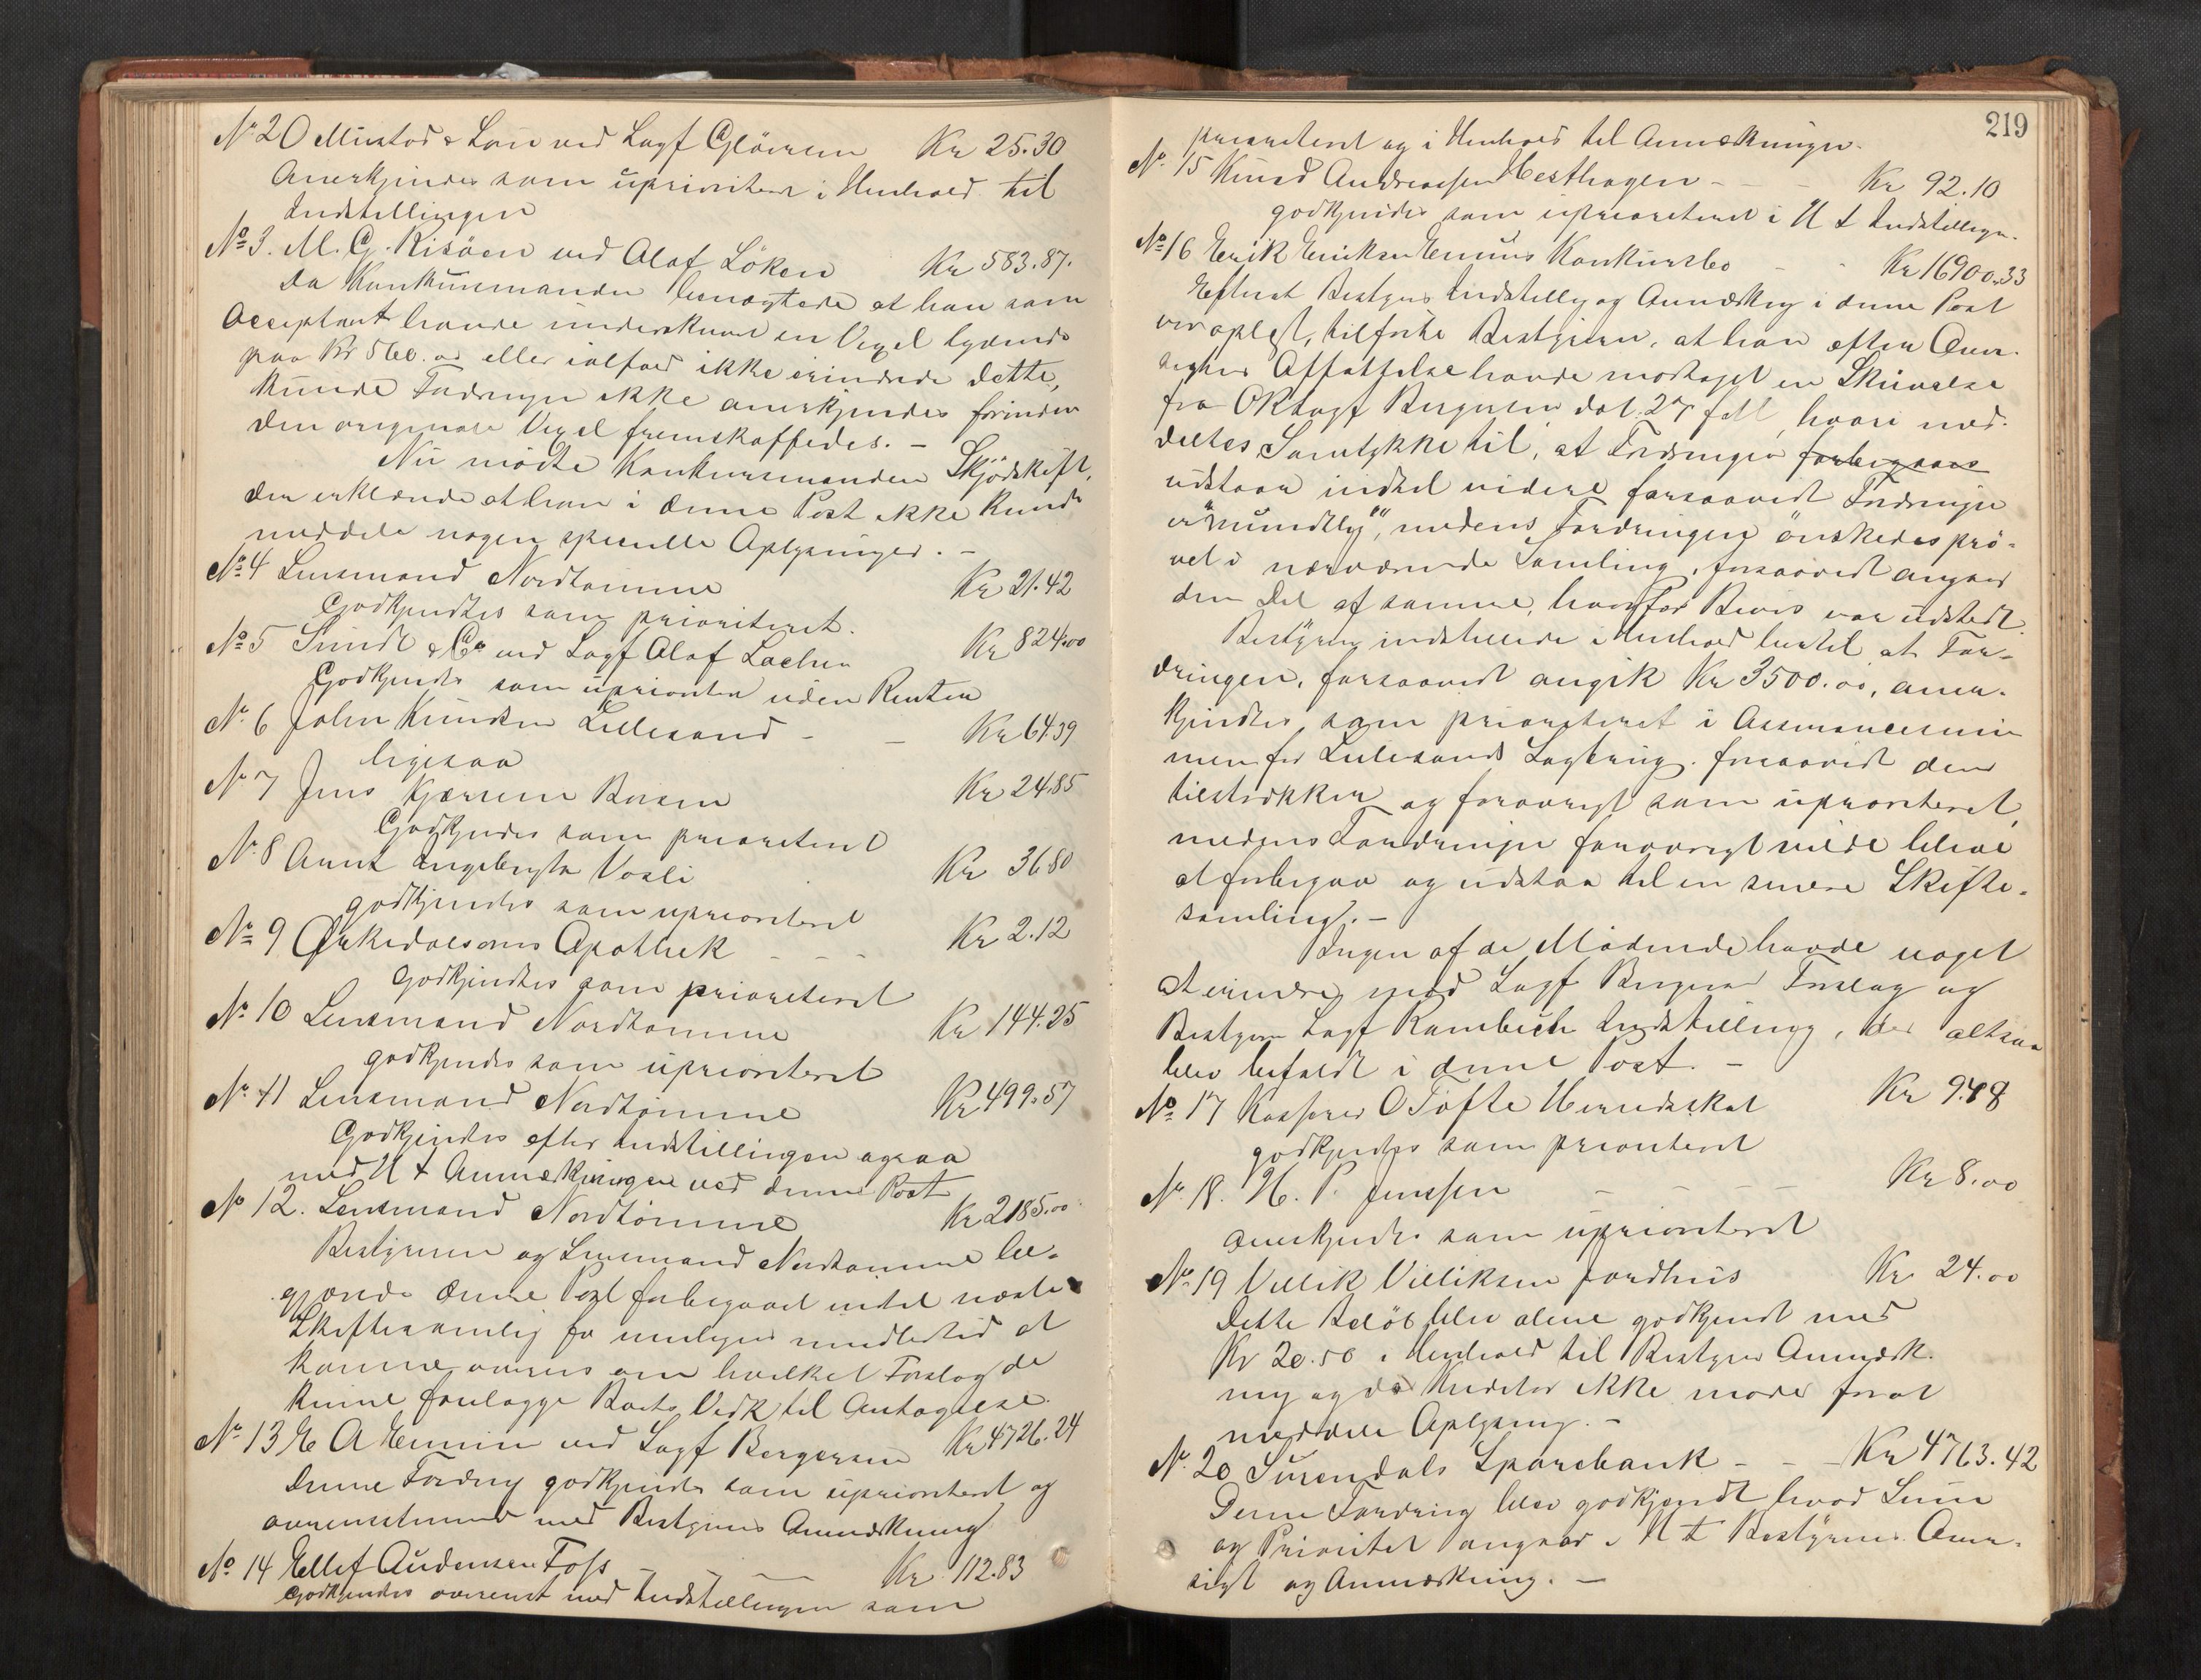 No 20 Mustad & Søn ved Sagf Gløersen Kr 25.30
Anerkjendes som uprioriteret i Henhold til
Indstillingen
No 3. M. G. Risøen ved Olaf Løken Kr 583.87.
Da Konkursmanden benægtede at han som
Acceptant havde underskrevet en Vexel lydende
paa Kr 560.00 eller ialfald ikke erindrede dette,
kunde Fordringen ikke anerkjendes forinden
den originale Vexel fremskaffedes. –
Nu mødte Konkursmanden Skjødskift,
der erklærede at han i denne Post ikke kunde
meddele nogen specielle Oplysninger. –
No 4 Lensmand Nordtømme Kr 21.42
Godkjendtes som prioriteret.
No 5 Sundt & Co ved Sagf Olaf Lachen Kr 824.00
Godkjendes som uprioriteret uden Renter
No 6 John Knudsen Lillesand – – Kr 64.39
ligesaa
No 7 Jens Kjærem Boisen Kr 24.85
Godkjendes som prioriteret
No 8 Arnt Ingebrigtsen Vaali Kr 36.80
godkjendes som uprioriteret
No 9 Ørkedalsørens Apothek – – – Kr 2.12
Godkjendtes som prioriteret
No 10 Lensmand Nordtømme Kr 144.25
godkjendes som uprioriteret
No 11 Lensmand Nordtømme Kr 499.57
Godkjendes efter Indstillingen ogsaa
med H t Anmærkningen ved denne Post
No 12. Lensmand Nordtømme Kr 2185.00
Bestyreren og Lensmand Nordtømme be-
gjærede denne Post forbigaaet indtil næste
Skiftesamling for muligens imidlertid at
komme overens om hvilket Forslag de
kunne forelægge Boets Vedk til Antagelse.
No 13 E A Emin ved Sagf Bergersen Kr 4726.24
Denne Fordring godkjendes som uprioriteret og
overensstemmende med Bestyrerens Anmærkning
No 14 Ellef Audensen Foss – – – Kr 112.83
Godkjendes overenst med Indstillingen som
219
prioriteret og i Henhold til Anmærkningen.
No 15 Knud Andreassen Hesthagen – – – Kr 92.10
godkjendes som uprioriteret i H t Indstillingen.
No 16 Erik Eriksen Emins Konkursbo – – Kr 16900.33
Efterat Bestyrers Indstilling og Anmærkg i denne Post
var oplæst, tilføiede Bestyreren, at han efter Over-
sigtens Affattelse havde modtaget en Skrivelse
fra ORsagf Bergersen dat. 27 ds, hvori med-
deltes Samtykke til, at Fordringen forbigaaes
udstaar indtil videre forsaavidt Fordringen
er "mundtlig", medens Fordringen ønskedes prø-
vet i nærværende Samling, forsaavidt angaar
den Del af samme, hvorfor Bevis var udstedt.
Bestyreren indstillede i Henhold hertil at For-
dringen, forsaavidt angik Kr 3500.00, aner-
kjendtes som prioriteret i Assurancesum-
men for Lillesands Sagbrug. forsaavidt den
tilstrækker og forøvrigt som uprioriteret,
medens Fordringen forøvrigt vilde blive
at forbigaa og udstaa til en senere Skifte-
samling. –
Ingen af de Mødende havde noget
at erindre mod Sagf Bergersens Forslag og
Bestyrer Sagf Rambech Indstilling, der altsaa
blev bifaldt i denne Post. –
No 17 Kasserer O Tofte Herredsskat Kr 9.48
godkjendtes som prioriteret
No 18. H. P. Jenssen – – – – Kr 8.00
Anerkjendtes som uprioriteret
No 19 Villik Villiksen Jordhus Kr 24.00
Dette Beløb blev alene godkjendt med
Kr 20.50 i Henhold til Bestyrers Anmærk-
ning og da Kreditor ikke møder for at
meddele Oplysning. –
No 20 Surendals Sparebank – – – Kr 4763.42
Denne Fordring blev godkjendt hvad Sum
og Prioritet angaar i H t Bestyrerens Over-
sigt og Anmærkning. –